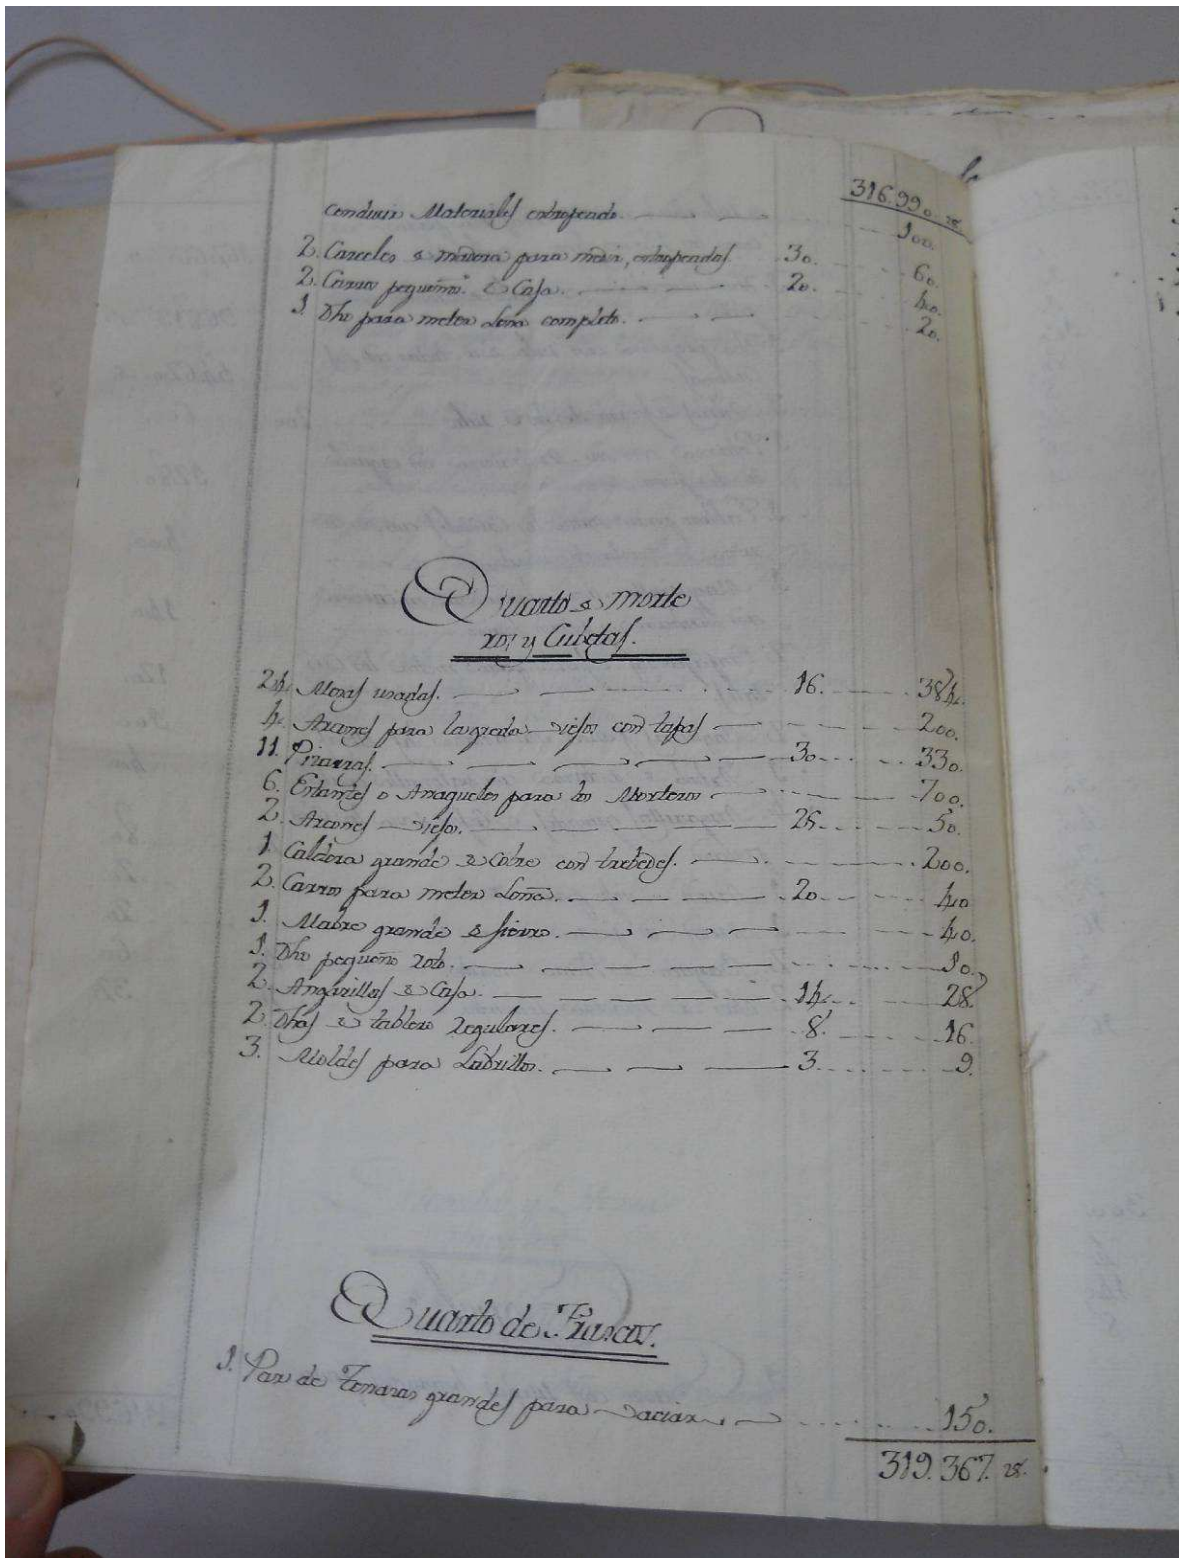 316.990. 28.
conducir Materiales estropeado. 100.
2. Carceles de madera para medir, estropeadas 30. 60.
2. Carros pequeños de Casa. 20. 40.
1. Dho para meter Leña completo. 20.
Quarto de morte
ros y Cubetas.
24. Mesas usadas. 16. 384.
4. Arcones para la greda viejos con tapas 200.
11. Pizarras. 30. 330.
6. Estantes o Anaqueles para los Morteros 700.
2. Arcones viejos. 25. 50.
1. Caldera grande de Cobre con trebedes. 200.
2. Carros para meter Leña. 20. 40
1. grande de fierro. 40.
1. Dho pequeño roto. 10.
2. Angarillas de Casa. 14. 28.
2. Dhas de tablero Regulares. 8. 16.
3. Moldes para Ladrillos. 3. 9.
Quarto de Frascos.
1. Par de Tenazas grandes para vaciar 150.
319.367. 28.